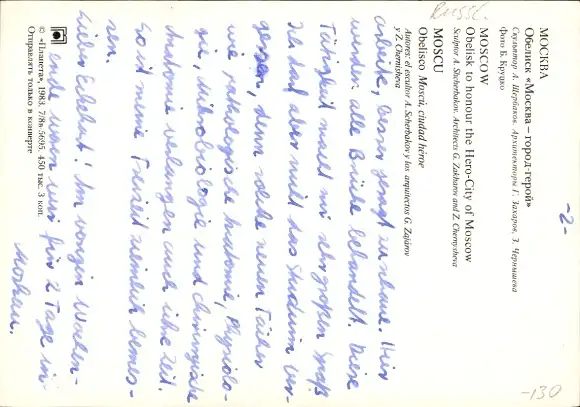 Russl.
-2-
МОСКВА
Обелиск «Москва – город-герой»
Скульптор А. Щербаков. Архитекторы Г. Захаров, З. Чернышева
Фото Б. Круцко
MOSCOW
Obelisk to honour the Hero-City of Moscow
Sculptor A. Shcherbakov. Architects G. Zakharov and Z. Chernysheva
MOSCU
Obelisco Moscú, ciudad héroe
Autores: el escultor A. Scherbakov y los arquitectos G. Zajárov
y Z. Chernisheva
arbeite, besser gesagt zu lerne. Hier
werden alle Brüche behandelt. Diese
Tätigkeit macht mir sehr großen Spaß
Ich darf aber nicht das Studium ver-
gessen, denn solche neuen Fächer
wie pathologische Anatomie, Physiolo-
gie, Mikrobiologie und chirurgische
Anatomie verlangen auch ihre Zeit.
So ist meine Freizeit ziemlich bemes-
sen.
Lieber Eckehart! Am vorigen Wochen-
ende waren wir für 2 Tage in
Moskau.
© «Планета», 1983. 7/8в-5695. 450 тыс. 3 коп.
Отправлять только в конверте
-130